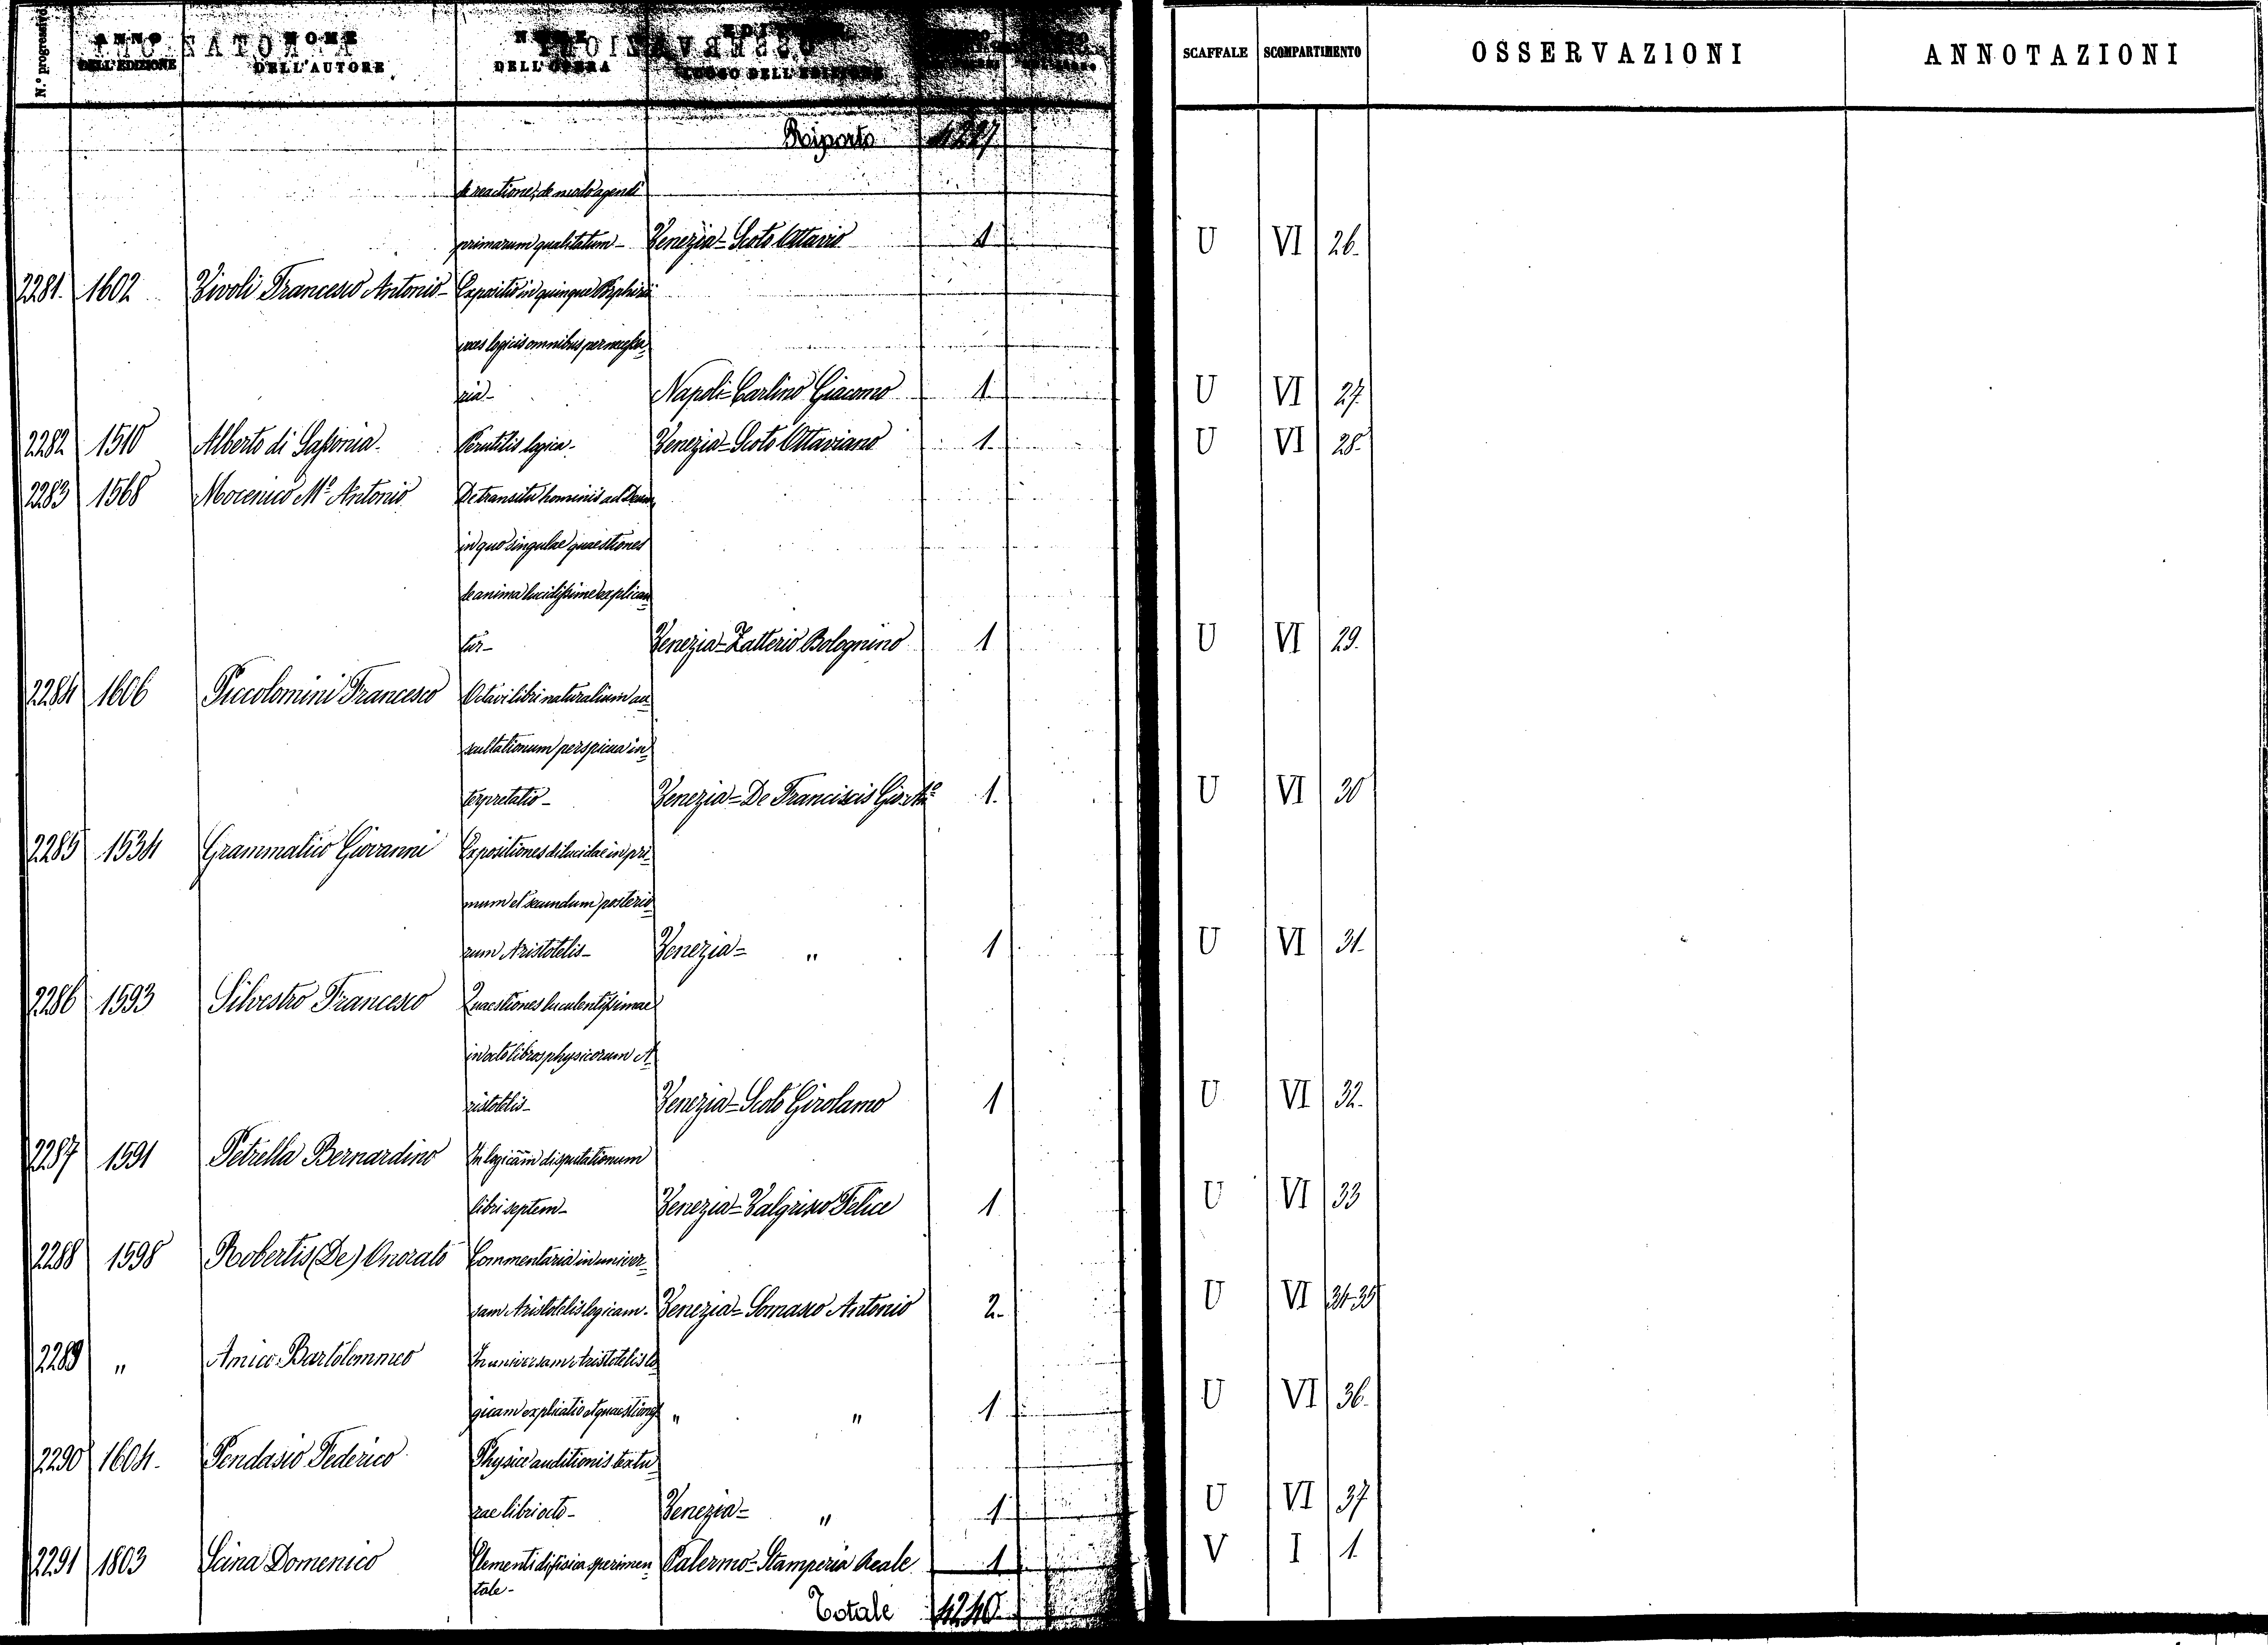 N.º progressivo ANNO DELL'EDIZIONE NOME DELL'AUTORE NOME DELL'OPERA LUOGO DELL'EDIZIONE SCAFFALE SCOMPARTIMENTO OSSERVAZIONI ANNOTAZIONI
Riporto 4227
de reactione, de modo agendi
primarum qualitatum - Venezia - Scoto Ottavio 1 U VI 26.
2281. 1602 Zivoli Francesco Antonio - Expositio in quinque Porphirii
voces logicis omnibus pernecessa=
ria - Napoli - Carlino Giacomo 1 U VI 27.
2282 1510 Alberto di Saßonia. Perutilis logica - Venezia - Scoto Ottaviano 1. U VI 28.
2283 1568 Mocenico Mº Antonio De transitu hominis ad Deum,
in quo singulae quaestiones
de anima lucidißime explican
tur - Venezia - Zatterio Bolognino 1 U VI 29.
2284 1606 Piccolomini Francesco Octavi libri naturalium au=
scultationum perspicua in=
terpretatio - Venezia = De Franciscis Gio: Anº 1. U VI 30
2285 1534 Grammatico Giovanni Expositiones dilucidae in pri=
mum et secundum posterio=
rum Aristotelis - Venezia = " 1 U VI 31.
2286 1593 Silvestro Francesco Quaestiones luculentißimae
in octo libros physicorum A=
ristotelis - Venezia - Scoto Girolamo 1 U VI 32.
2287 1591 Petrella Bernardino In logicam disputationum
libri septem - Venezia - Valgriso Felice 1 U VI 33
2288 1598 Robertis (De) Onorato Commentaria in univer=
sam Aristotelis logicam. Venezia - Somasco Antonio 2. U VI 34-35
2289 " Amico Bartolommeo In universam Aristotelis lo
gicam explicatio et quaestiones " " 1 U VI 36.
2290 1604. Pendasio Federico Physice auditionis textu=
rae libri octo - Venezia = " 1 U VI 37
2291 1803 Scina Domenico Elementi di fisica sperimen= Palermo - Stamperia Reale 1 V I 1.
tale -
Totale 4240